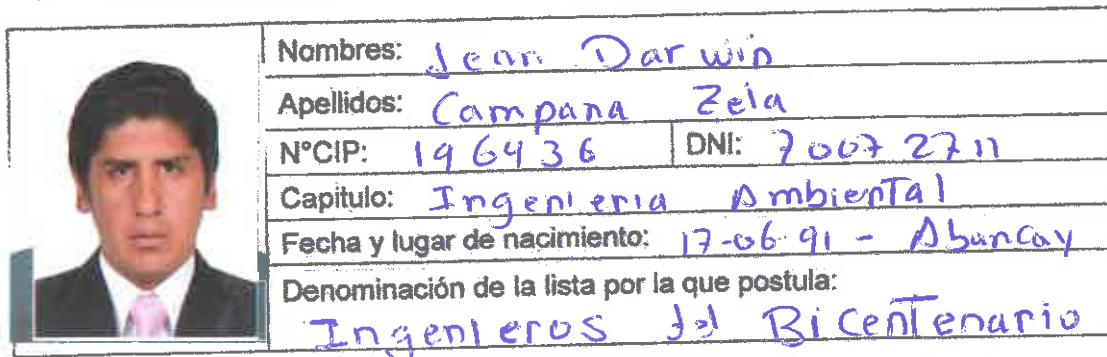 Nombres: Jean Darwin
Apellidos: Campana Zela
N°CIP: 196436 DNI: 70072711
Capitulo: Ingenieria Ambiental
Fecha y lugar de nacimiento: 17-06-91 - Abancay
Denominación de la lista por la que postula:
Ingenieros del BiCentenario